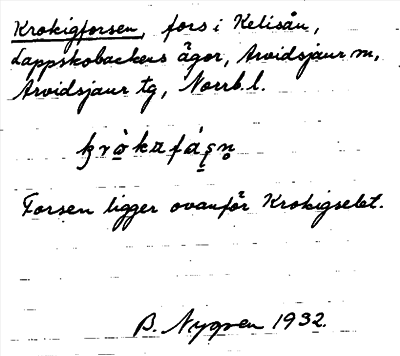 Krokigforsen, fors i Kelisån,
Lappskobackens ägor, Arvidsjaur m,
Arvidsjaur tg, Norrb. l.
Forsen ligger ovanför Krokigselet.
B. Nygren 1932.